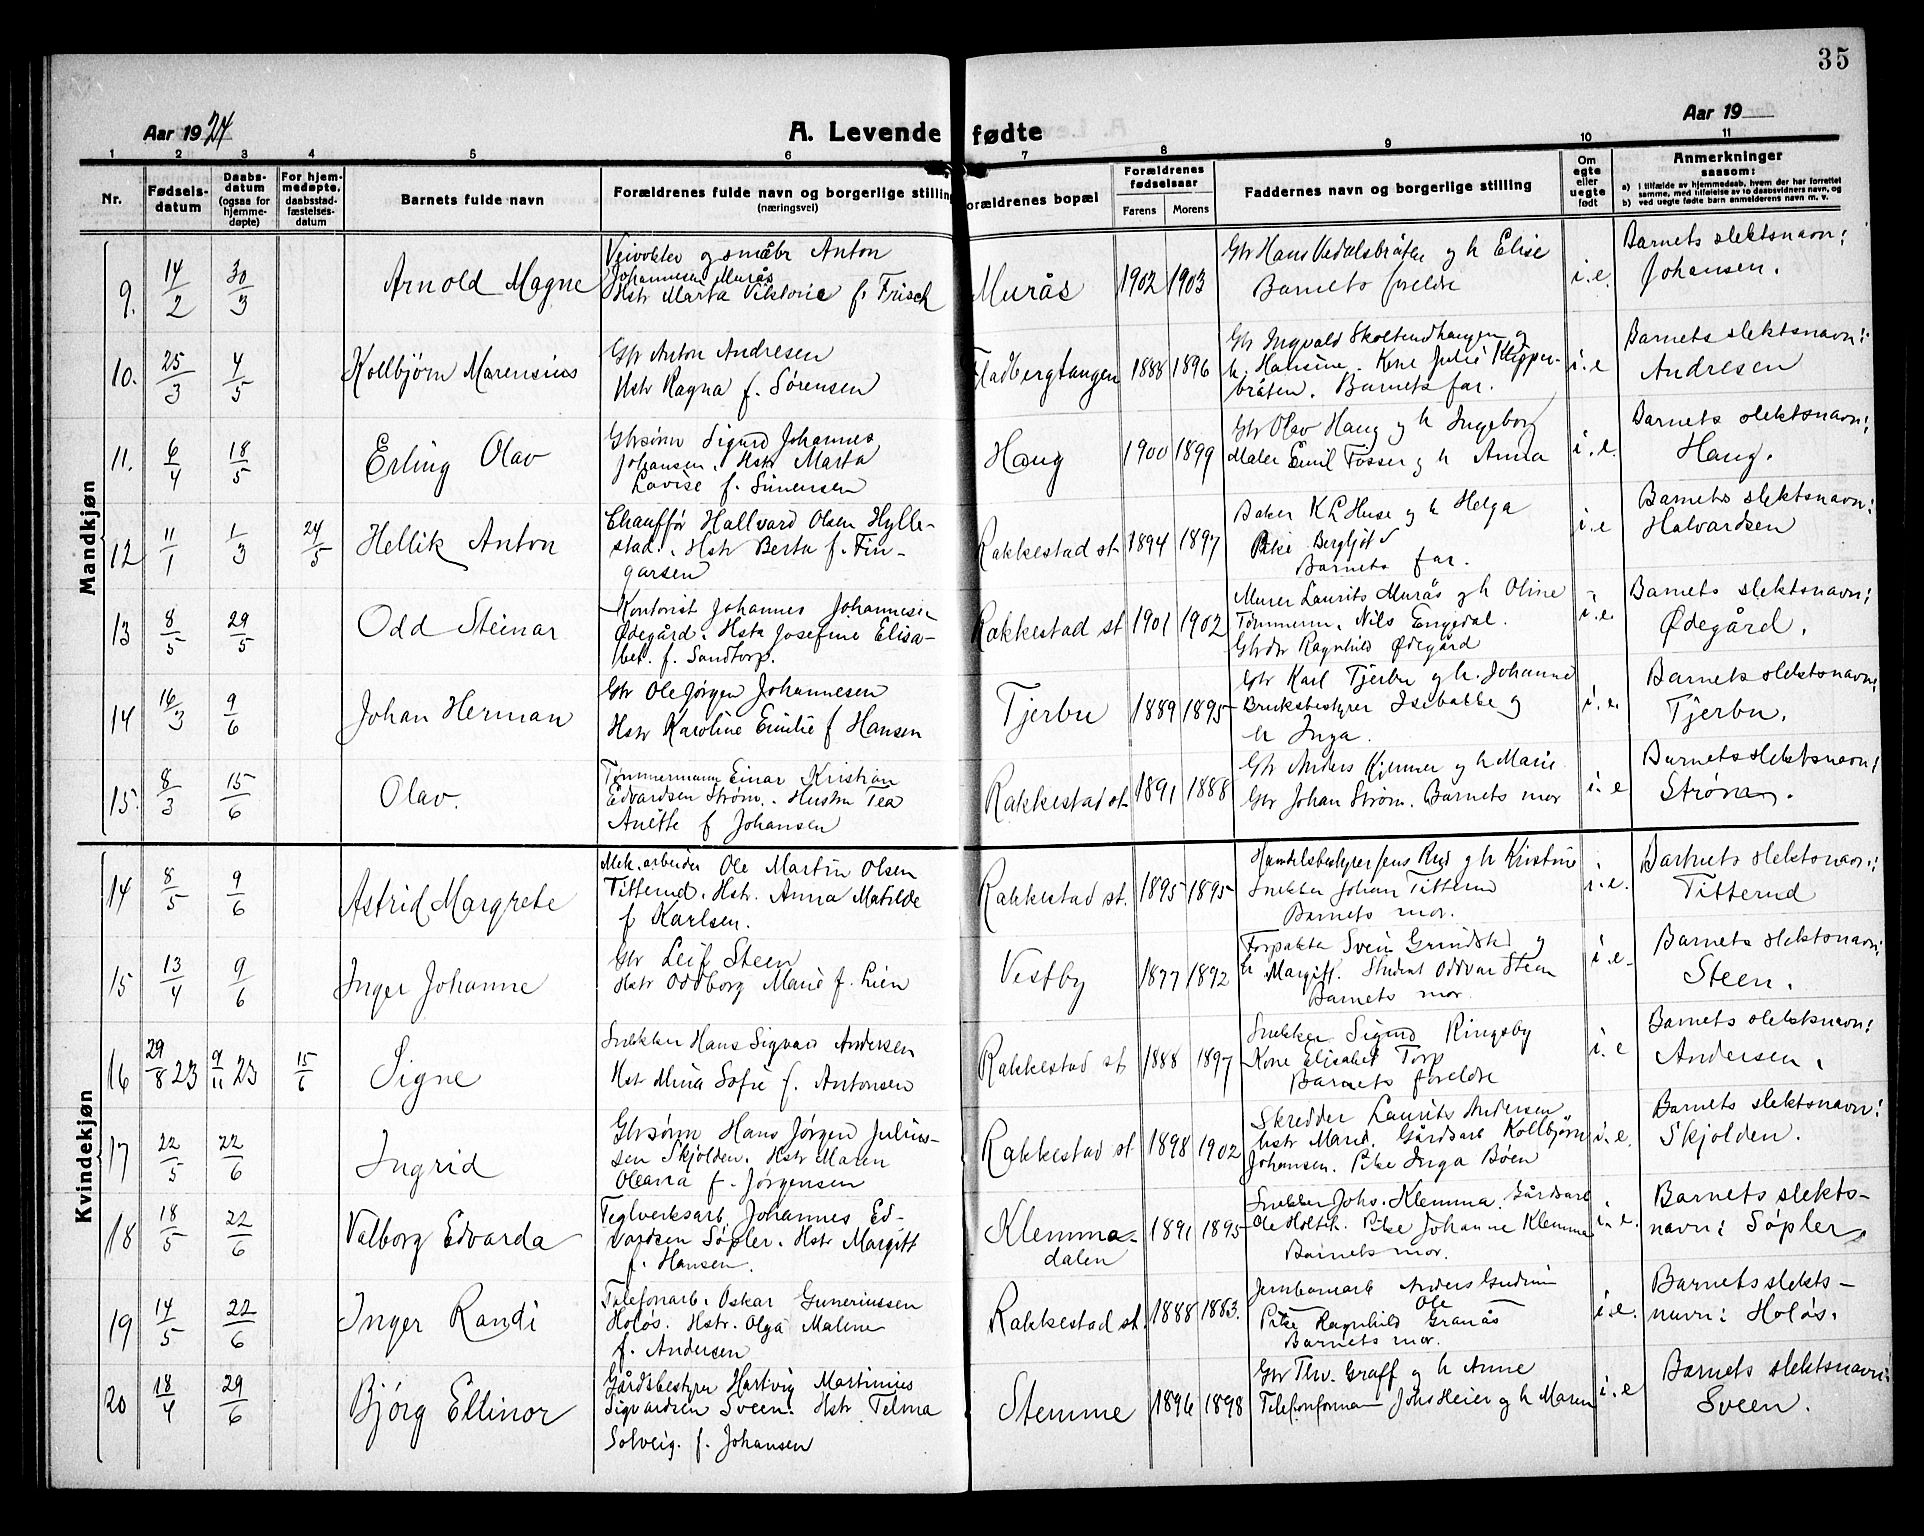 35
Aar 1924
A. Levende fødte
Aar 19
1 2 3 4 5 6 7 8 9 10 11
Nr.
Fødsels-
datum
Daabs-
datum
(ogsaa for
hjemme-
døpte)
For hjem-
medøpte,
daabsstad-
fæstelses-
datum
Barnets fulde navn
Forældrenes fulde navn og borgerlige stilling
(næringsvei)
Forældrenes bopæl
Forældrenes
fødselsaar
Farens
Morens
Faddernes navn og borgerlige stilling
Om
egte
eller
uegte
født
Anmerkninger
saasom:
a) I tilfælde av hjemmedaab, hvem der har forrettet
samme, med tilføielse av to daabsvidners navn, og
b) ved uegte fødte barn anmelderens navn m. v.
Mandkjøn
9. 14/2 30/3 Arnold Magne
Veivokter og småbr Anton
Johannesen Murås
Hstr Marta Viktorie f. Frisch
Murås 1902 1903
Gbr Hans Vedalsbråten og h Elise
Barnets foreldre
i.e.
Barnets slektsnavn:
Johansen.
10. 25/3 4/5 Kollbjørn Marensius
Gbr Anton Andresen
Hstr Ragna f. Sørensen
Fladbergtangen 1888 1896
Gbr Ingvald Skoltendhaugen og
h. Hansine. Kone Julie Klypper-
bråten. Barnets far.
i.e
Barnets slektsnavn:
Andresen
11. 6/4 18/5 Erling Olav
Gbrsønn Sigurd Johannes
Johansen. Hstr Marta
Lovise f. Simensen
Haug 1900 1899
Gbr Olav Haug og h Ingeborg
Maler Emil Fosser og h Anna
i.e.
Barnets slektsnavn:
Haug.
12 11/1 1/3 24/5 Hellik Anton
Chauffør Hallvard Olsen Hylle-
stad. Hstr Berta f. Fin-
garsen
Rakkestad st. 1894 1897
Baker K L Huse og h Helga
Pike Bergljot
Barnets far.
i.e
Barnets slektsnavn:
Halvardsen
13 8/5 29/5 Odd Steinar
Kontorist Johannes Johannesen
Ødegård. Hstr Josefine Elisa-
bet. f. Sandtorp.
Rakkestad st 1901 1902
Murer Laurits Murås og h Oline
Tømmerm. Nils Engedal.
Gbrdtr Ragnhild Ødegård
i.e.
Barnets slektsnavn:
Ødegård.
14 16/3 9/6 Johan Herman
Gbr Ole Jørgen Johannesen
Hstr Karoline Emilie f Hansen
Tjerbu 1889 1895
Gbr Karl Tjerbu og h. Johanne
Bruksbestyrer Isebakke og
h Inga.
i.e.
Barnets slektsnavn:
Tjerbu.
15. 8/3 15/6 Olav.
Tømmermann Einar Kristian
Edvardsen Strøm. Hustru Tea
Anette f Johansen
Rakkestad st. 1891 1888
Gbr Anders Kjenner og h Marie
Gbr Johan Strøm. Barnets mor
i.e
Barnets slektsnavn:
Strøm.
Kvindekjøn
14 8/5 9/6 Astrid Margrete
Mek. arbeider Ole Martin Olsen
Titterud. Hstr. Anna Matilde
f Karlsen.
Rakkestad st. 1895 1895
Handelsbestyrer Jens Rud og h Kristine
Snekker Johan Titterud
Barnets mor.
i.e.
Barnets slektsnavn:
Titterud
15 13/4 9/6 Inger Johanne
Gbr Leif Steen
Hstr Oddborg Marie f. Lien
Vestby 1877 1892
Forpakter Svein Grindstad og
h Margitt. Student Oddvar Steen
Barnets mor.
i.e.
Barnets slektsnavn:
Steen.
16 29/8 23 9/11 23 15/6 Signe
Snekker Hans Sigvart Andersen
Hstr Mina Sofie f. Antonsen
Rakkestad st 1888 1897
Snekker Sigurd Ringsby
Kone Elisabet Torp
Barnets foreldre
i.e
Barnets slektsnavn:
Andersen.
17 22/5 22/6 Ingrid
Gbrsønn Hans Jørgen Julius-
sen Skjolden. Hstr Maren
Oleana f. Jørgensen
Rakkestad st 1898 1902
Skredder Laurits Andersen
hstr Marie. Gårdsarb Kollbjørn
Johansen. Pike Inga Bøen
i.e.
Barnets slektsnavn:
Skjolden.
18 18/5 22/6 Valborg Edvarda
Teglverksarb. Johannes Ed-
vardsen Søpler. Hstr Margitt
f. Hansen.
Klemma-
dalen 1891 1895
Snekker Johs. Klemma. Gårdsarb
Ole Holtch. Pike Johanne Klemma
Barnets mor.
i.e.
Barnets slekts-
navn: Søpler.
19 14/5 22/6 Inger Randi
Telefonarb. Oskar Guneriussen
Holøs. Hstr. Olga Malene
f. Andersen
Rakkestad st. 1888 1883.
Jernbanearb Anders Gudim
Pike Ragnhild Ole Granås
Barnets mor.
i.e.
Barnets slekts-
navn: Holøs.
20 18/4 29/6 Bjørg Ellinor
Gårdsbestyrer Hartvig Martinius
Sigvardsen Sveen. Hstr Telma
Solveig. f. Johansen
Stemme 1896 1898
Gbr Thv. Graff og h Anne
Telefonformann Johs Heier og h Maren
i.e
Barnets slektsnavn:
Sveen.